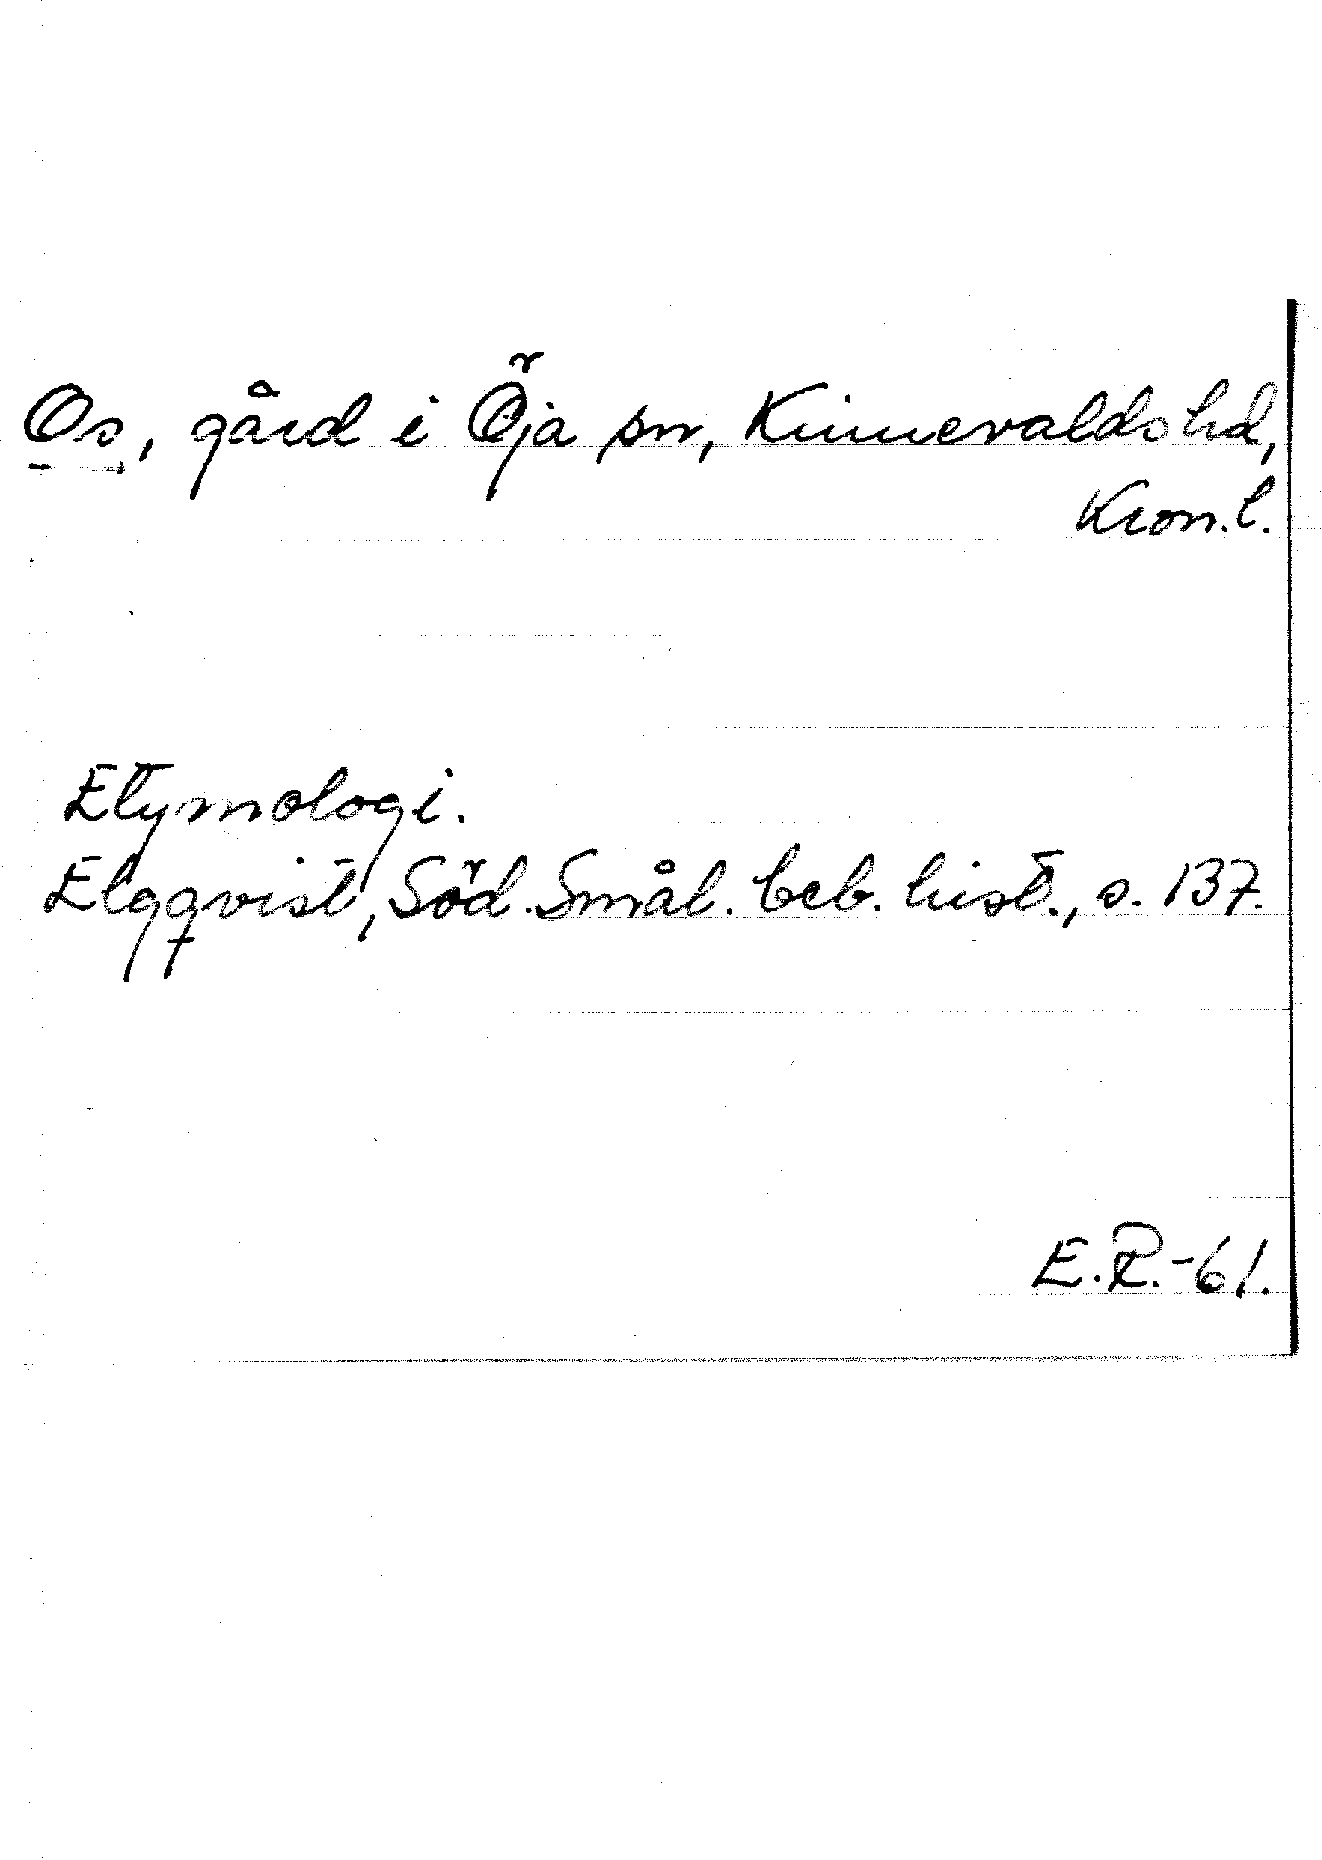 Os, gård i Öja sn, Kinnevalds hd,
Kron. l.
Etymologi.
Elgqvist, Söd. Smål. beb. hist., s. 137.
E.R.-61.